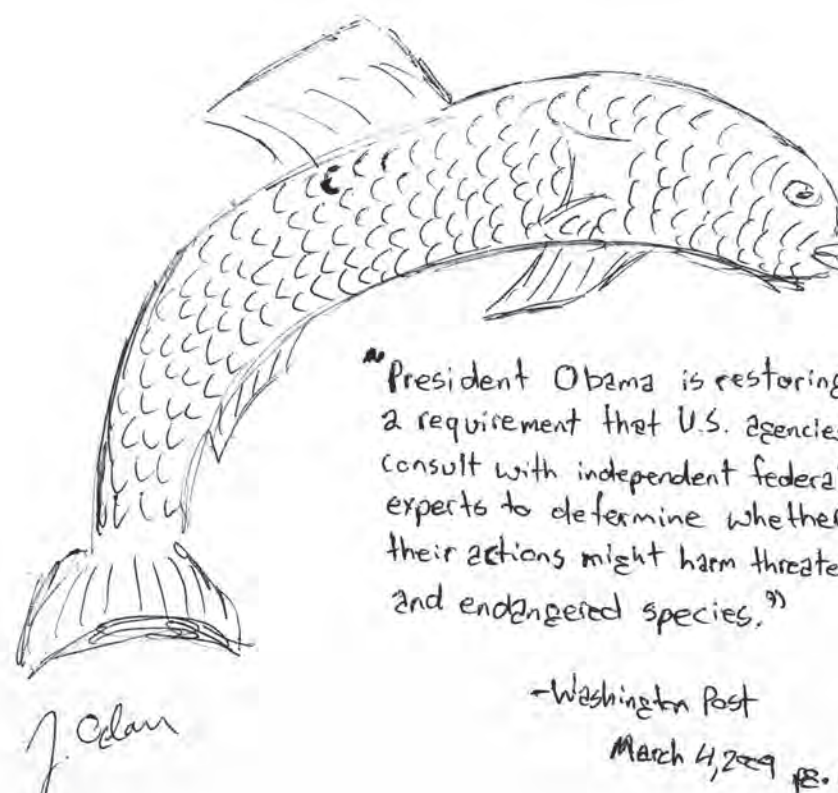 "President Obama is restoring
a requirement that U.S. agencies
consult with independent federal
experts to determine whether
their actions might harm threate
and endangered species."
-Washington Post
March 4, 2009 pg.
J.